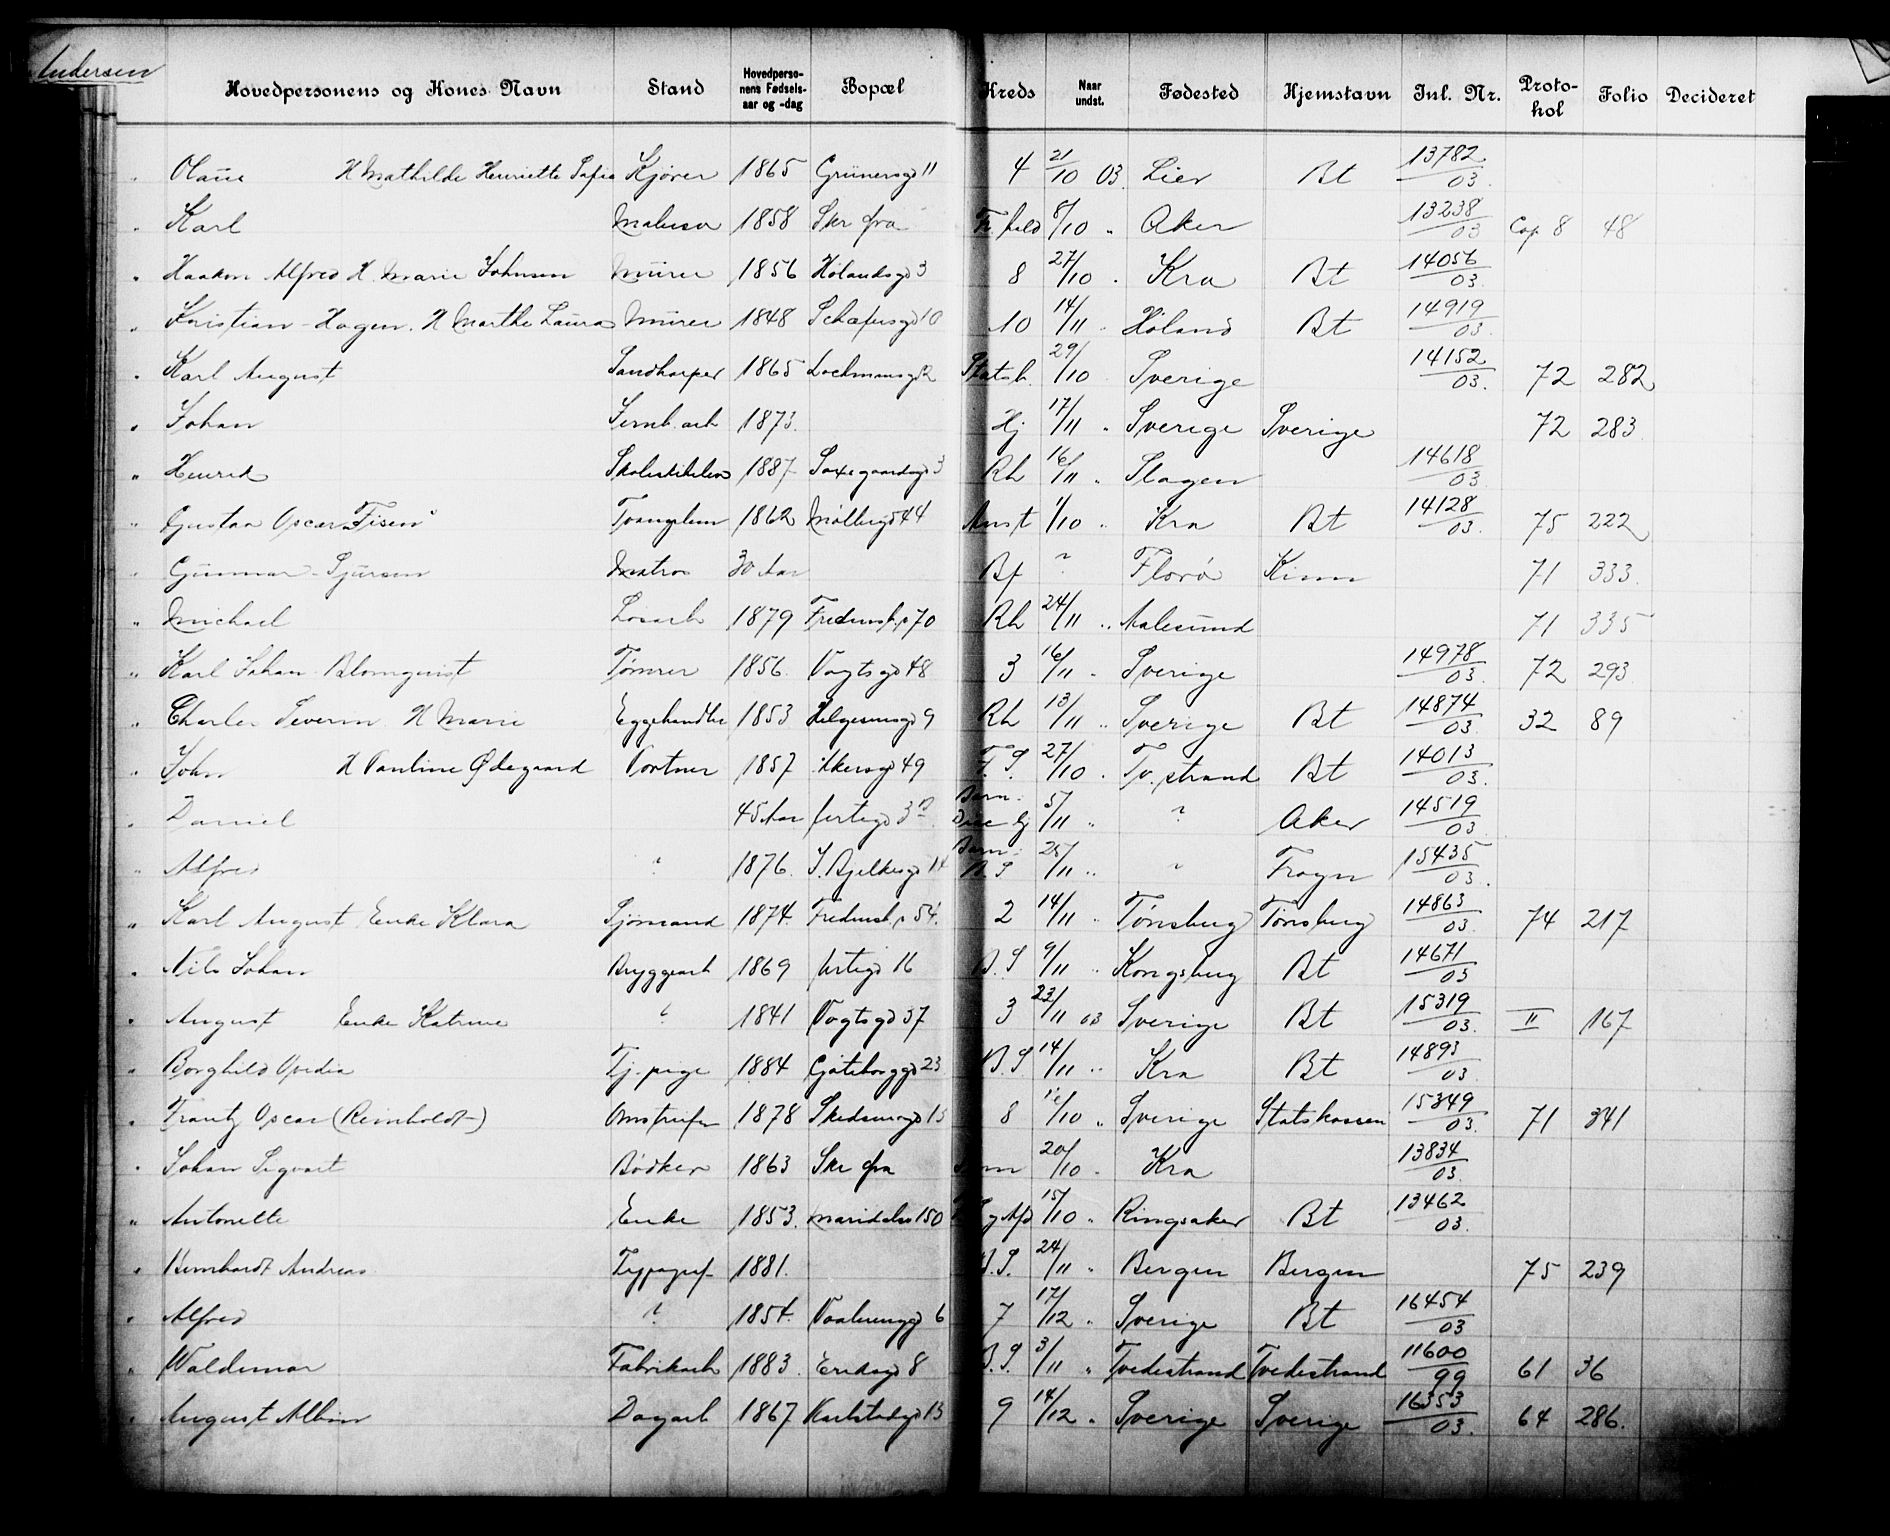 Andersen
Hovedpersonens og Kones Navn Stand Hovedpersonens Fødselsaar og -dag Bopæl Kreds Naar undst. Fødested Hjemstavn Inl. Nr. Protokol Folio Decideret
" H Mathilde Henriette Sofie Kjører 1865 Grünersgd 11 4 21/10 03. Lier Bt 13782/03.
" Karl 1858 Skr fra 8/10 " Aker 13238/03 Cop 8 48
" Haakon Alfred H. Marie Johnsen Murer 1856 Hølandsgd 3 8 27/10 " Kra Bt 14056/03.
" Kristian Hagen. H Marthe Laura Murer 1848 10 14/11 " Høland Bt 14919/03.
" Karl August 1865 29/10 Sverige 14152/03. 72 282
" Johan 1873. Hj 17/11 " Sverige Sverige 72 283
" Henrik 1887 Saxegaardsgd 3 Rh 16/11 " Slagen 14618/03
" Gustav Oscar 1862 Møllergd 44 /10 " Kra Bt 14128/03. 75 222
" Gunnar Sjursen Matros 30 Aar Bf ? Florø Kinn 71 333
" Michael Løsarb 1879 70 Rh 24/11 " Aalesund 71 335
" Karl Johan Blomquist Tømrer 1856. Vogtsgd 48 3 16/11 " Sverige 14978/03. 72 293
" Charles Severin H Marie Eggehandler 1853 Helgesensgd 9 Rh 13/11 " Sverige Bt 14874/03. 32 89
" John H Pauline Ødegaard Portner 1857 Akersgd 49 F. S. 27/10 " Tv. strand Bt 14013/03.
" Daniel 45 Aar 5/11 " ? Aker 14519/03.
" Alfred ? 1876. J. Bjelkesgd 14 25/11 " " Frogn 15435/03.
" Karl August Enke Klara Sjømand 1874. 54. 2 14/11 " Tønsberg Tønsberg 14863/03. 74 217
" Nils Johan Bryggearb 1869 16 B. S 9/11 " Kongsberg Bt 14671/03
" August Enke Katrine ? 1841 Vogtsgd 37 3 23/11 03 Sverige Bt 15319/03. II 167
" Borghild Ovidia Tj. pige 1884 Gøteborggd 23 B. S. 14/11 " Kra Bt 14893/03.
" Frantz Oscar (Reinholdt) 1878 Skedsmogd 8 /10 " Sverige Statskassen 15349/03. 71 341
" Johan Sigvart Bødker 1863 Skr fra 20/10 " Kra 13834/03.
" Antonette Enke 1853. 150 15/10 " Ringsaker Bt 13462/03.
" Bernhardt Andreas Typograf 1881. B. S. 24/11 " Bergen Bergen 75 239
" Alfred ? 1854. Vaalerenggd 6 7 17/12 " Sverige Bt 16454/03
" Waldemar Fabrikarb 1883. 8 B. S. 3/11 " Tvedestrand Tvedestrand 11600/99 61 36
" August Albin Dagarb 1867 Karlstadgd 13 9 14/12 " Sverige Sverige 16353/03. 64 286.